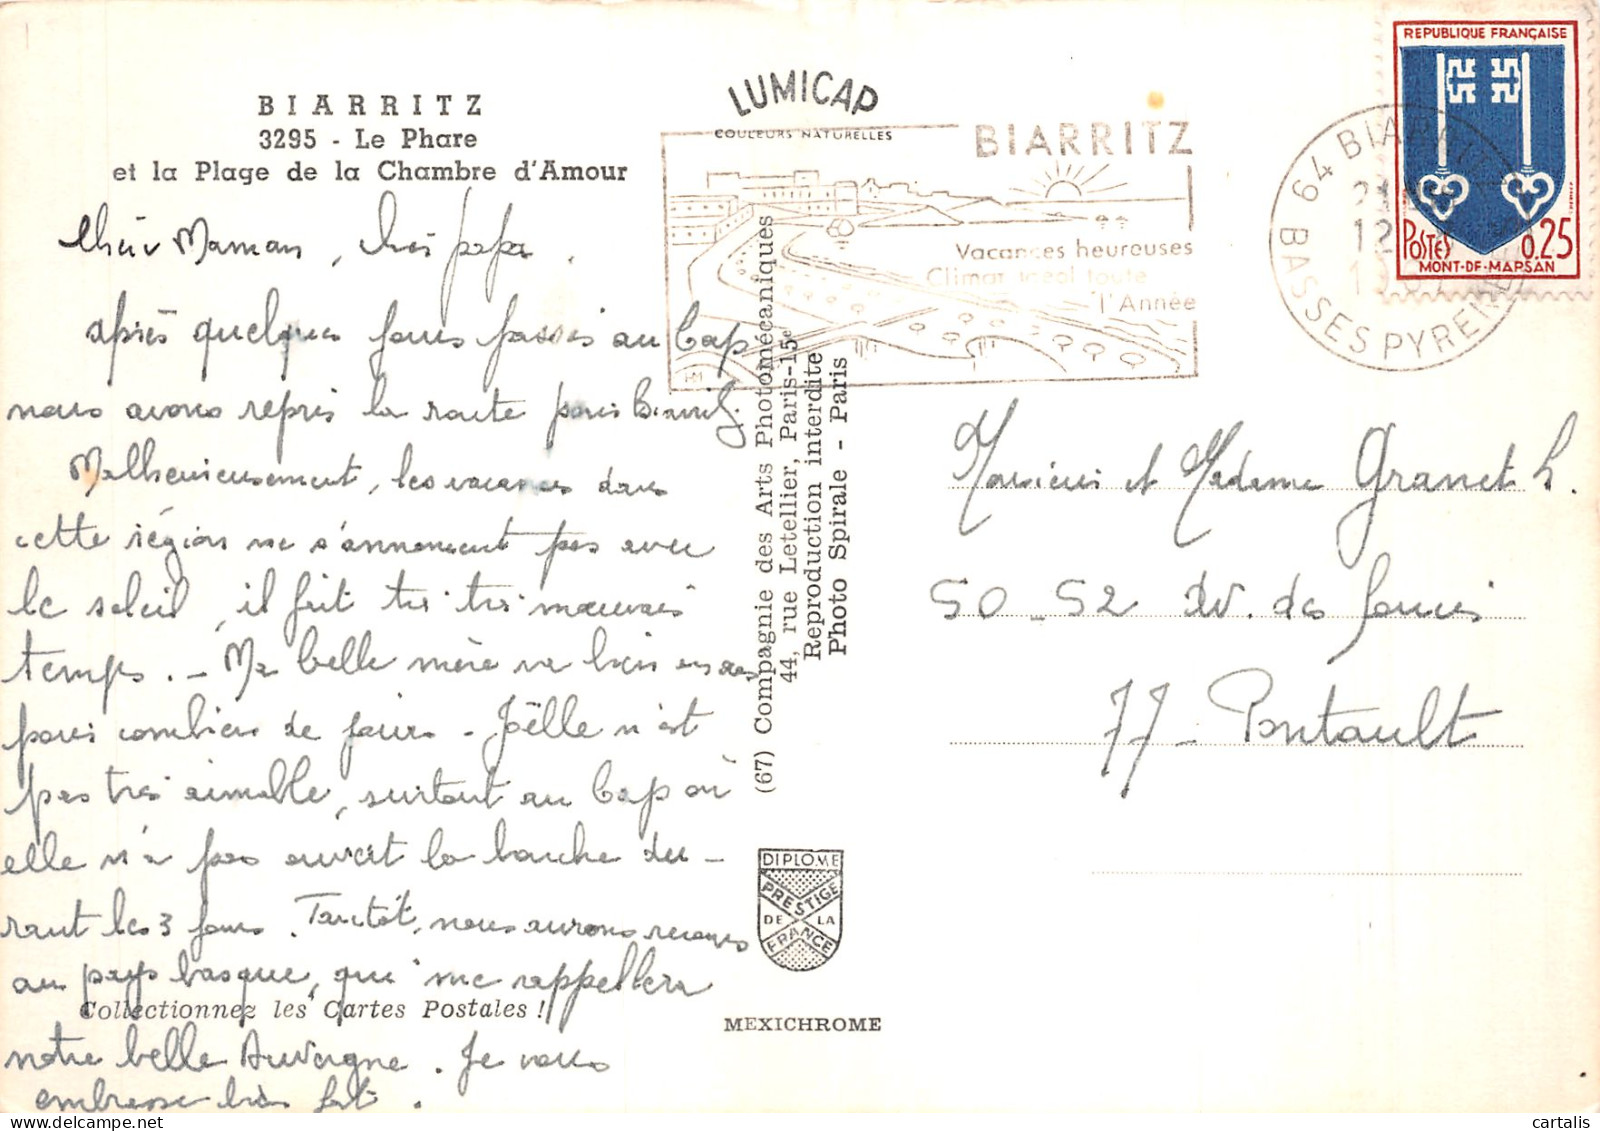 BIARRITZ
3295 - Le Phare
et la Plage de la Chambre d'Amour
Chère Maman, cher papa.
après quelques jours passés au Cap
nous avons repris la route pour Biarritz.
Malheureusement, les vacances dans
cette région ne s'annoncent pas avec
le soleil, il fait très très mauvais
temps. - Ma belle mère va bien
pour combien de jours. Joëlle n'est
pas très aimable, surtout au Cap où
elle n'a pas ouvert la bouche du-
rant les 3 jours. Tantôt, nous aurons
au pays basque, qui me rappellera
notre belle Auvergne. Je vous
embrasse bien fort.
Collectionnez les Cartes Postales !
LUMICAP
COULEURS NATURELLES
BIARRITZ
Vacances heureuses
Climat idéal toute
l'Année
64 BIARRITZ
BASSES PYRENEES
REPUBLIQUE FRANÇAISE
POSTES 0,25
MONT-DE-MARSAN
(67) Compagnie des Arts Photomécaniques
44, rue Letellier, Paris-15e
Reproduction interdite
Photo Spirale - Paris
DIPLOME
PRESTIGE
DE LA
FRANCE
MEXICHROME
Monsieur et Madame Granet L.
50-52 av. des
77 - Pontault
cartalis